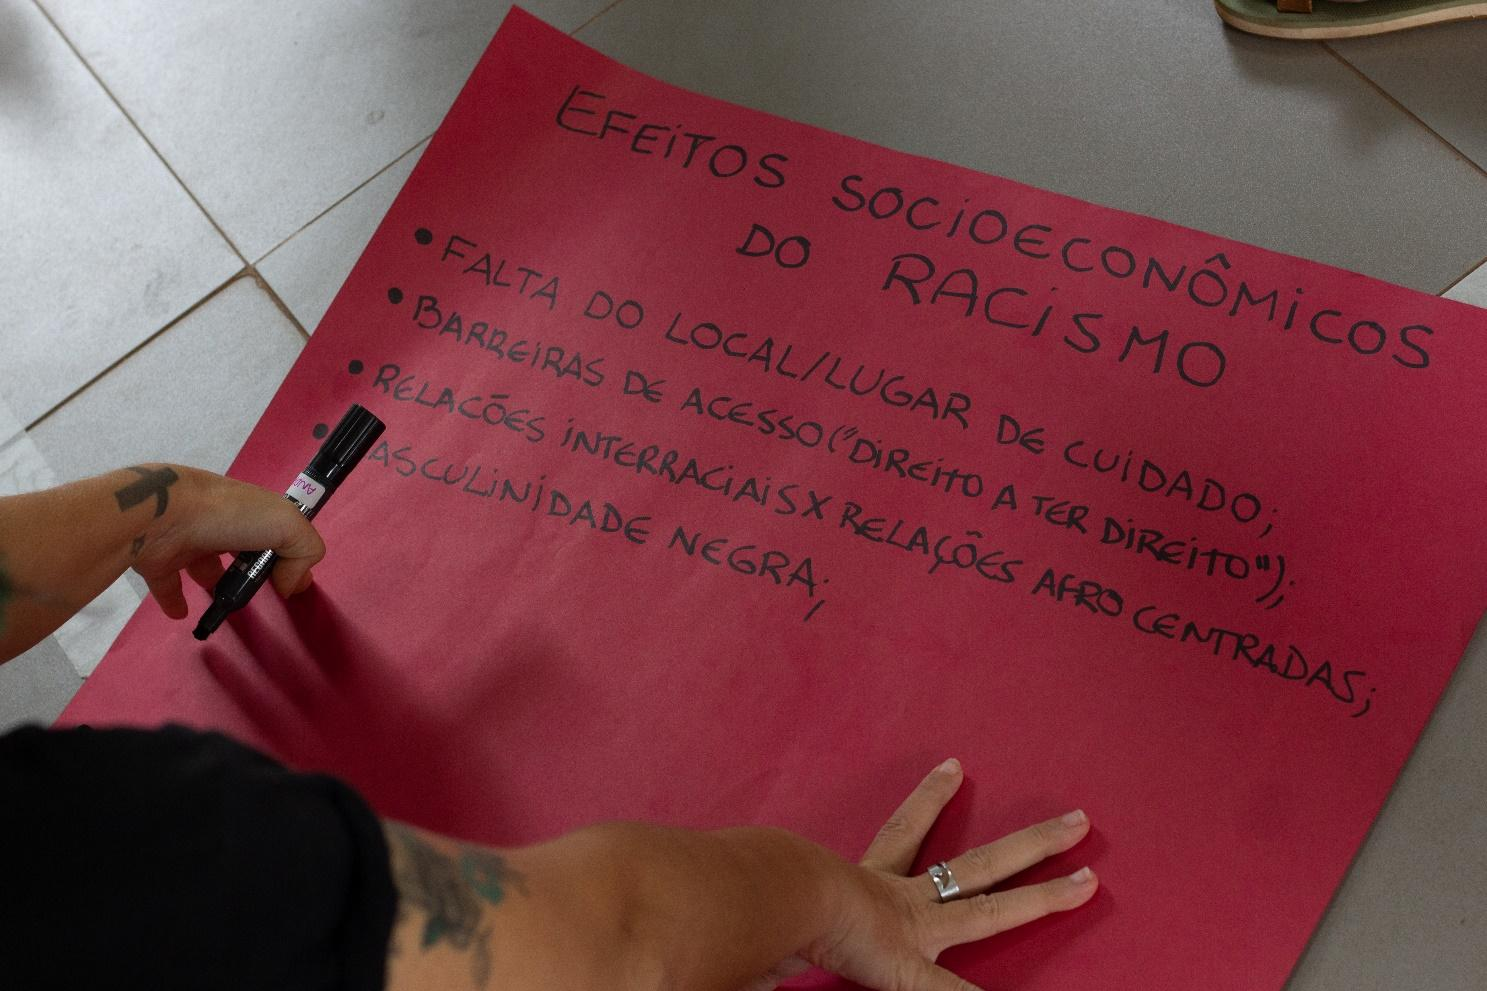 EFEITOS SOCIOECONÔMICOS
DO RACISMO
• FALTA DO LOCAL/LUGAR DE CUIDADO;
• BARREIRAS DE ACESSO ("DIREITO A TER DIREITO");
• RELACÕES INTERRACIAIS X RELAÇÕES AFRO CENTRADAS;
• ASCULINIDADE NEGRA;